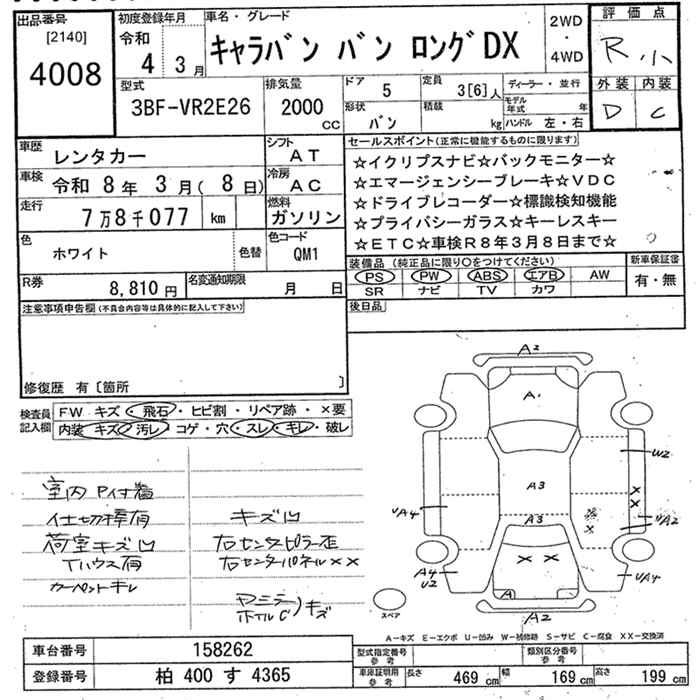 出品番号
[2140]
4008
初度登録年月
令和
4 3月
車名・グレード
キャラバン バン ロングDX
2WD
・
4WD
評価点
R 小
外装 内装
D C
型式
3BF-VR2E26
排気量
2000 CC
ドア 5
定員 3[6]人
ディーラー・並行
形状 バン
積載 kg
モデル年式 年
ハンドル 左・右
車歴 レンタカー
シフト AT
車検 令和 8年 3月( 8日)
冷房 AC
走行 7万8千077 km
燃料 ガソリン
色 ホワイト
色替
色コード QM1
R券 8,810円
名変通知期限 月 日
セールスポイント(正常に機能するものに限ります)
☆イクリプスナビ☆バックモニター☆
☆エマージェンシーブレーキ☆VDC
☆ドライブレコーダー☆標識検知機能
☆プライバシーガラス☆キーレスキー
☆ETC☆車検R8年3月8日まで☆
装備品(純正品に限り○をつけてください)
PS PW ABS エアB AW
SR ナビ TV カワ
新車保証書
有・無
後日品
注意事項申告欄(不具合内容等は具体的に記入して下さい)
修復歴 有〔箇所 〕
検査員記入欄
FW キズ・飛石・ヒビ割・リペア跡・×要
内装 キズ 汚レ コゲ・穴・スレ・キレ・破レ
仕切棒有
荷室キズ凹
Tハウス有
カーペットキレ
キズ凹
右センタピラー歪
右センタパネル××
ホイルC キズ
A2
A1
A3
A3
W2
VA4
VA2
A4
V2
VA4
A
A2
スペア
A-キズ E-エクボ U-凹み W-補修跡 S-サビ C-腐食 XX-交換済
車台番号 158262
登録番号 柏 400 す 4365
型式指定番号 参考
類別区分番号 参考
車庫証明用 参考
長さ 469 cm
幅 169 cm
高さ 199 cm